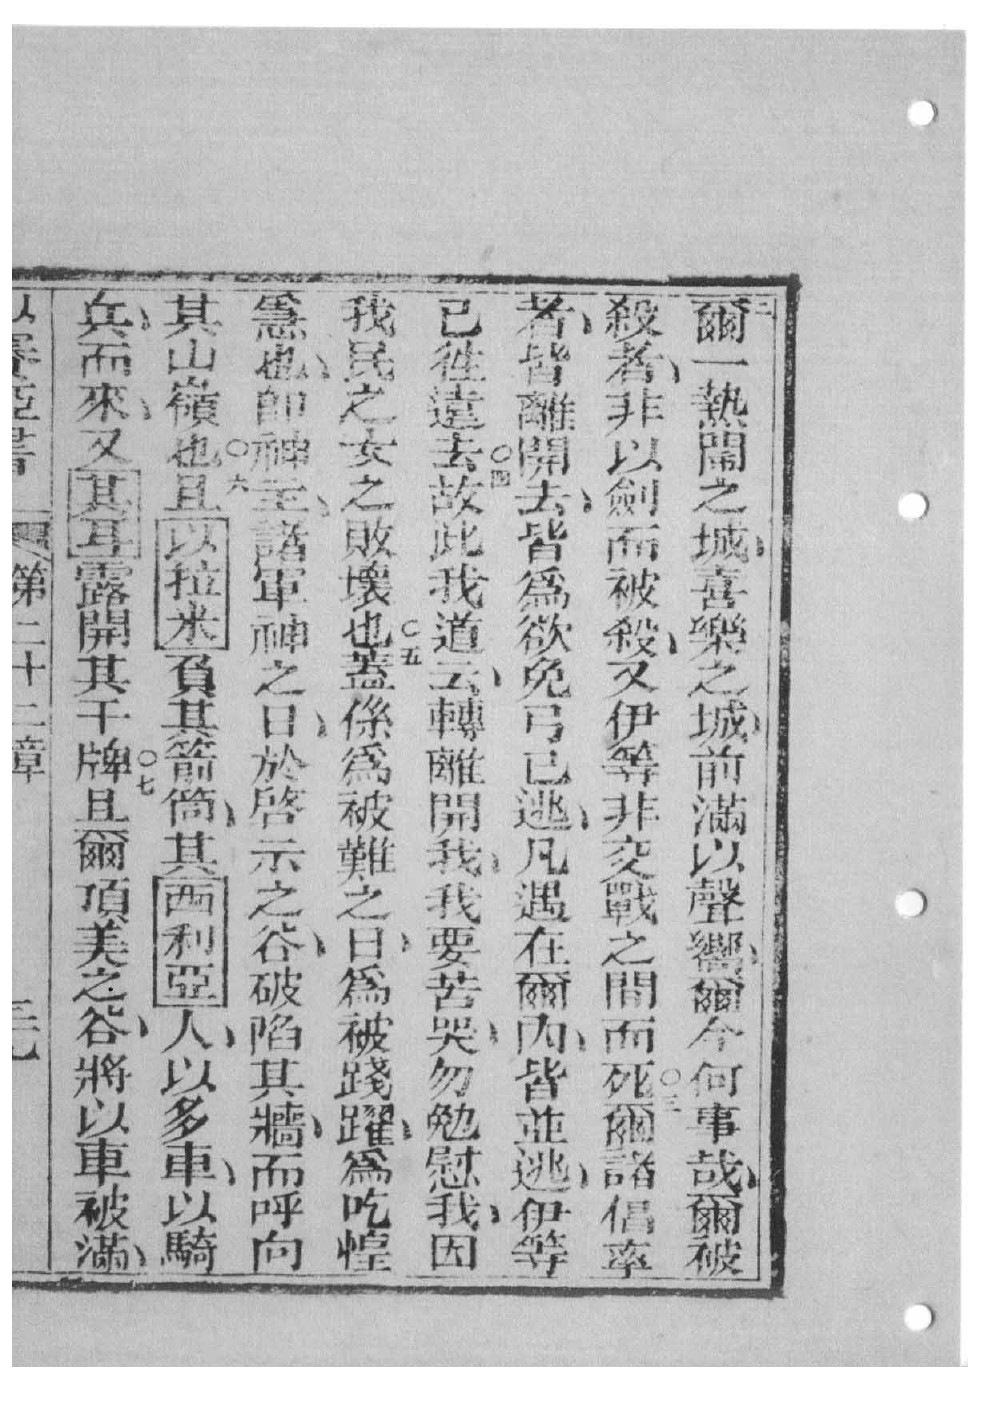 二爾一熱鬧之城、喜樂之城、前滿以聲嚮、爾今何事哉、爾被
殺者、非以劍而被殺、又伊等非交戰之間而死○三爾諸倡率
者、皆離開去、皆爲欲免弓已逃、凡遇在爾內、皆並逃、伊等
已徃遠去○四故此我道云、轉離開我、我要苦哭、勿勉慰我、因
我民之女之敗壞也○五蓋係爲被難之日、爲被踐躍、爲吃惶
急也、卽神主、諸軍神之日、於啓示之谷、破陷其牆、而呼向
其山嶺也○六且以拉米負其箭筒、其西利亞人、以多車、以騎
兵、而來、又其耳露開其干牌○七且爾頂美之谷、將以車被滿、
以賽亞書 第二十二章